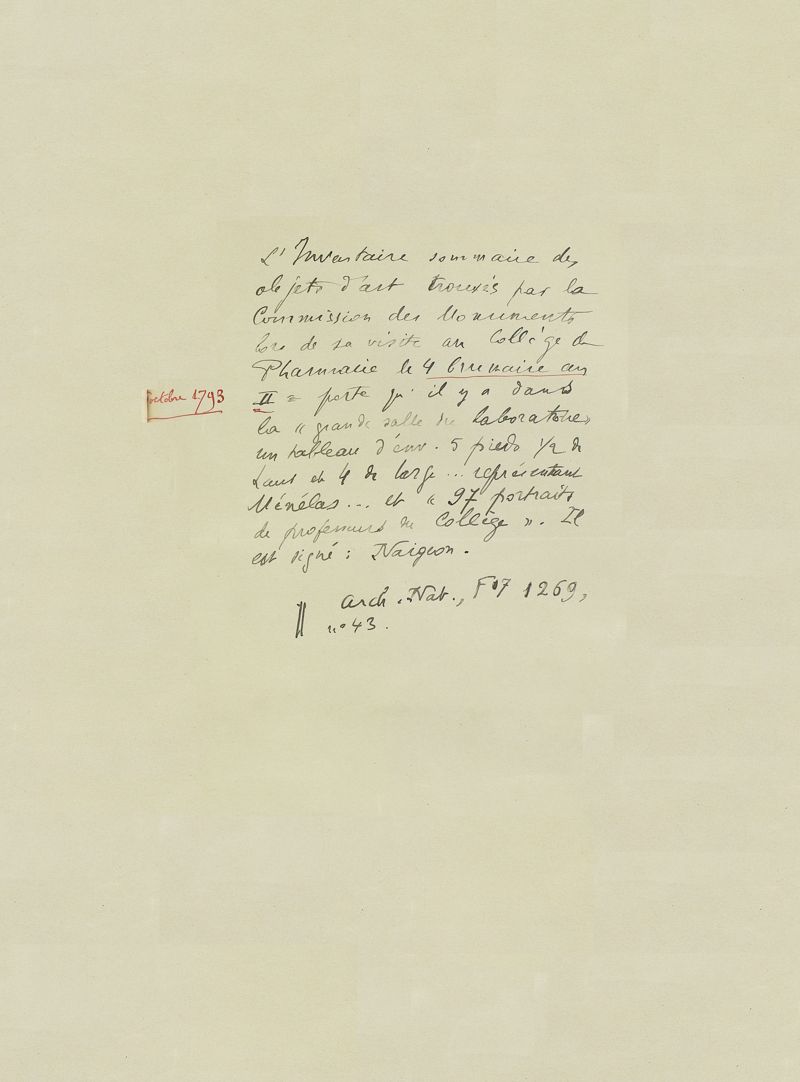 L'Inventaire sommaire des
objets d'art trouvés par la
Commission des Monuments
lors de sa visite au Collège de
Pharmacie le 4 brumaire an
octobre 1793
II = porte qu'il y a dans
la « grande salle du laboratoire »
un tableau d'env. 5 pieds 1/2 de
haut et 4 de large ... représentant
Ménélas ... et « 97 portraits
de professeurs du Collège ». Il
est signé : Naigeon.
Arch. Nat., F17 1269,
n° 43.